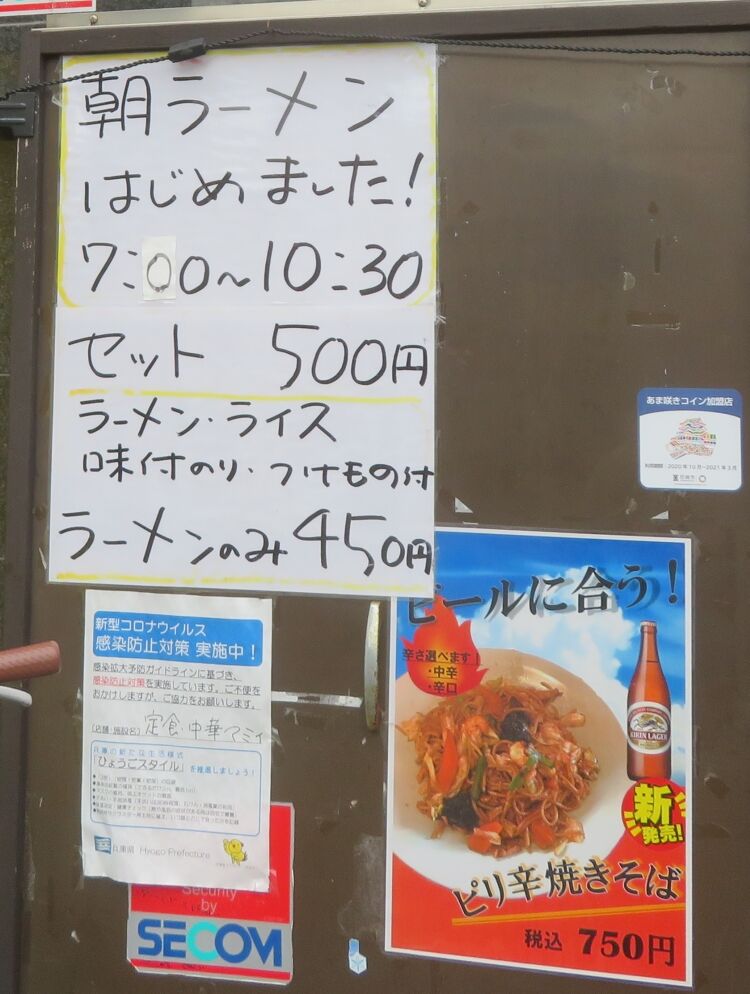 朝ラーメン
はじめました!
7:00~10:30
セット 500円
ラーメン・ライス
味付のり・つけもの付
ラーメンのみ 450円
あま咲きコイン加盟店
2020年10月~2021年3月
新型コロナウイルス
感染防止対策 実施中!
感染拡大予防ガイドラインに基づき、
感染防止対策を実施しています。ご不便を
おかけしますが、ご協力をお願いします。
(店舗・施設名) 定食・中華アミイ
兵庫の新たな生活様式
「ひょうごスタイル」を推進しましょう!
兵庫県 Hyogo Prefecture
Security
by
SECOM
ビールに合う!
辛さ選べます
・中辛
・辛口
KIRIN LAGER
新
発売!
ピリ辛焼きそば
税込 750円